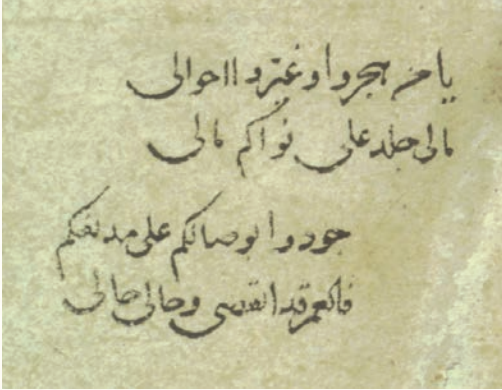 يا من هجروا وغيروا احوالى
مالى جلد على نواكم مالى
جودوا بوصالكم على مدنفكم
فالعمر قد انقضى وحالى حالى